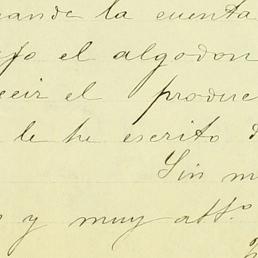 la cuenta
el algodon
el produc
le he escrito d
Sin m
y muy att.º